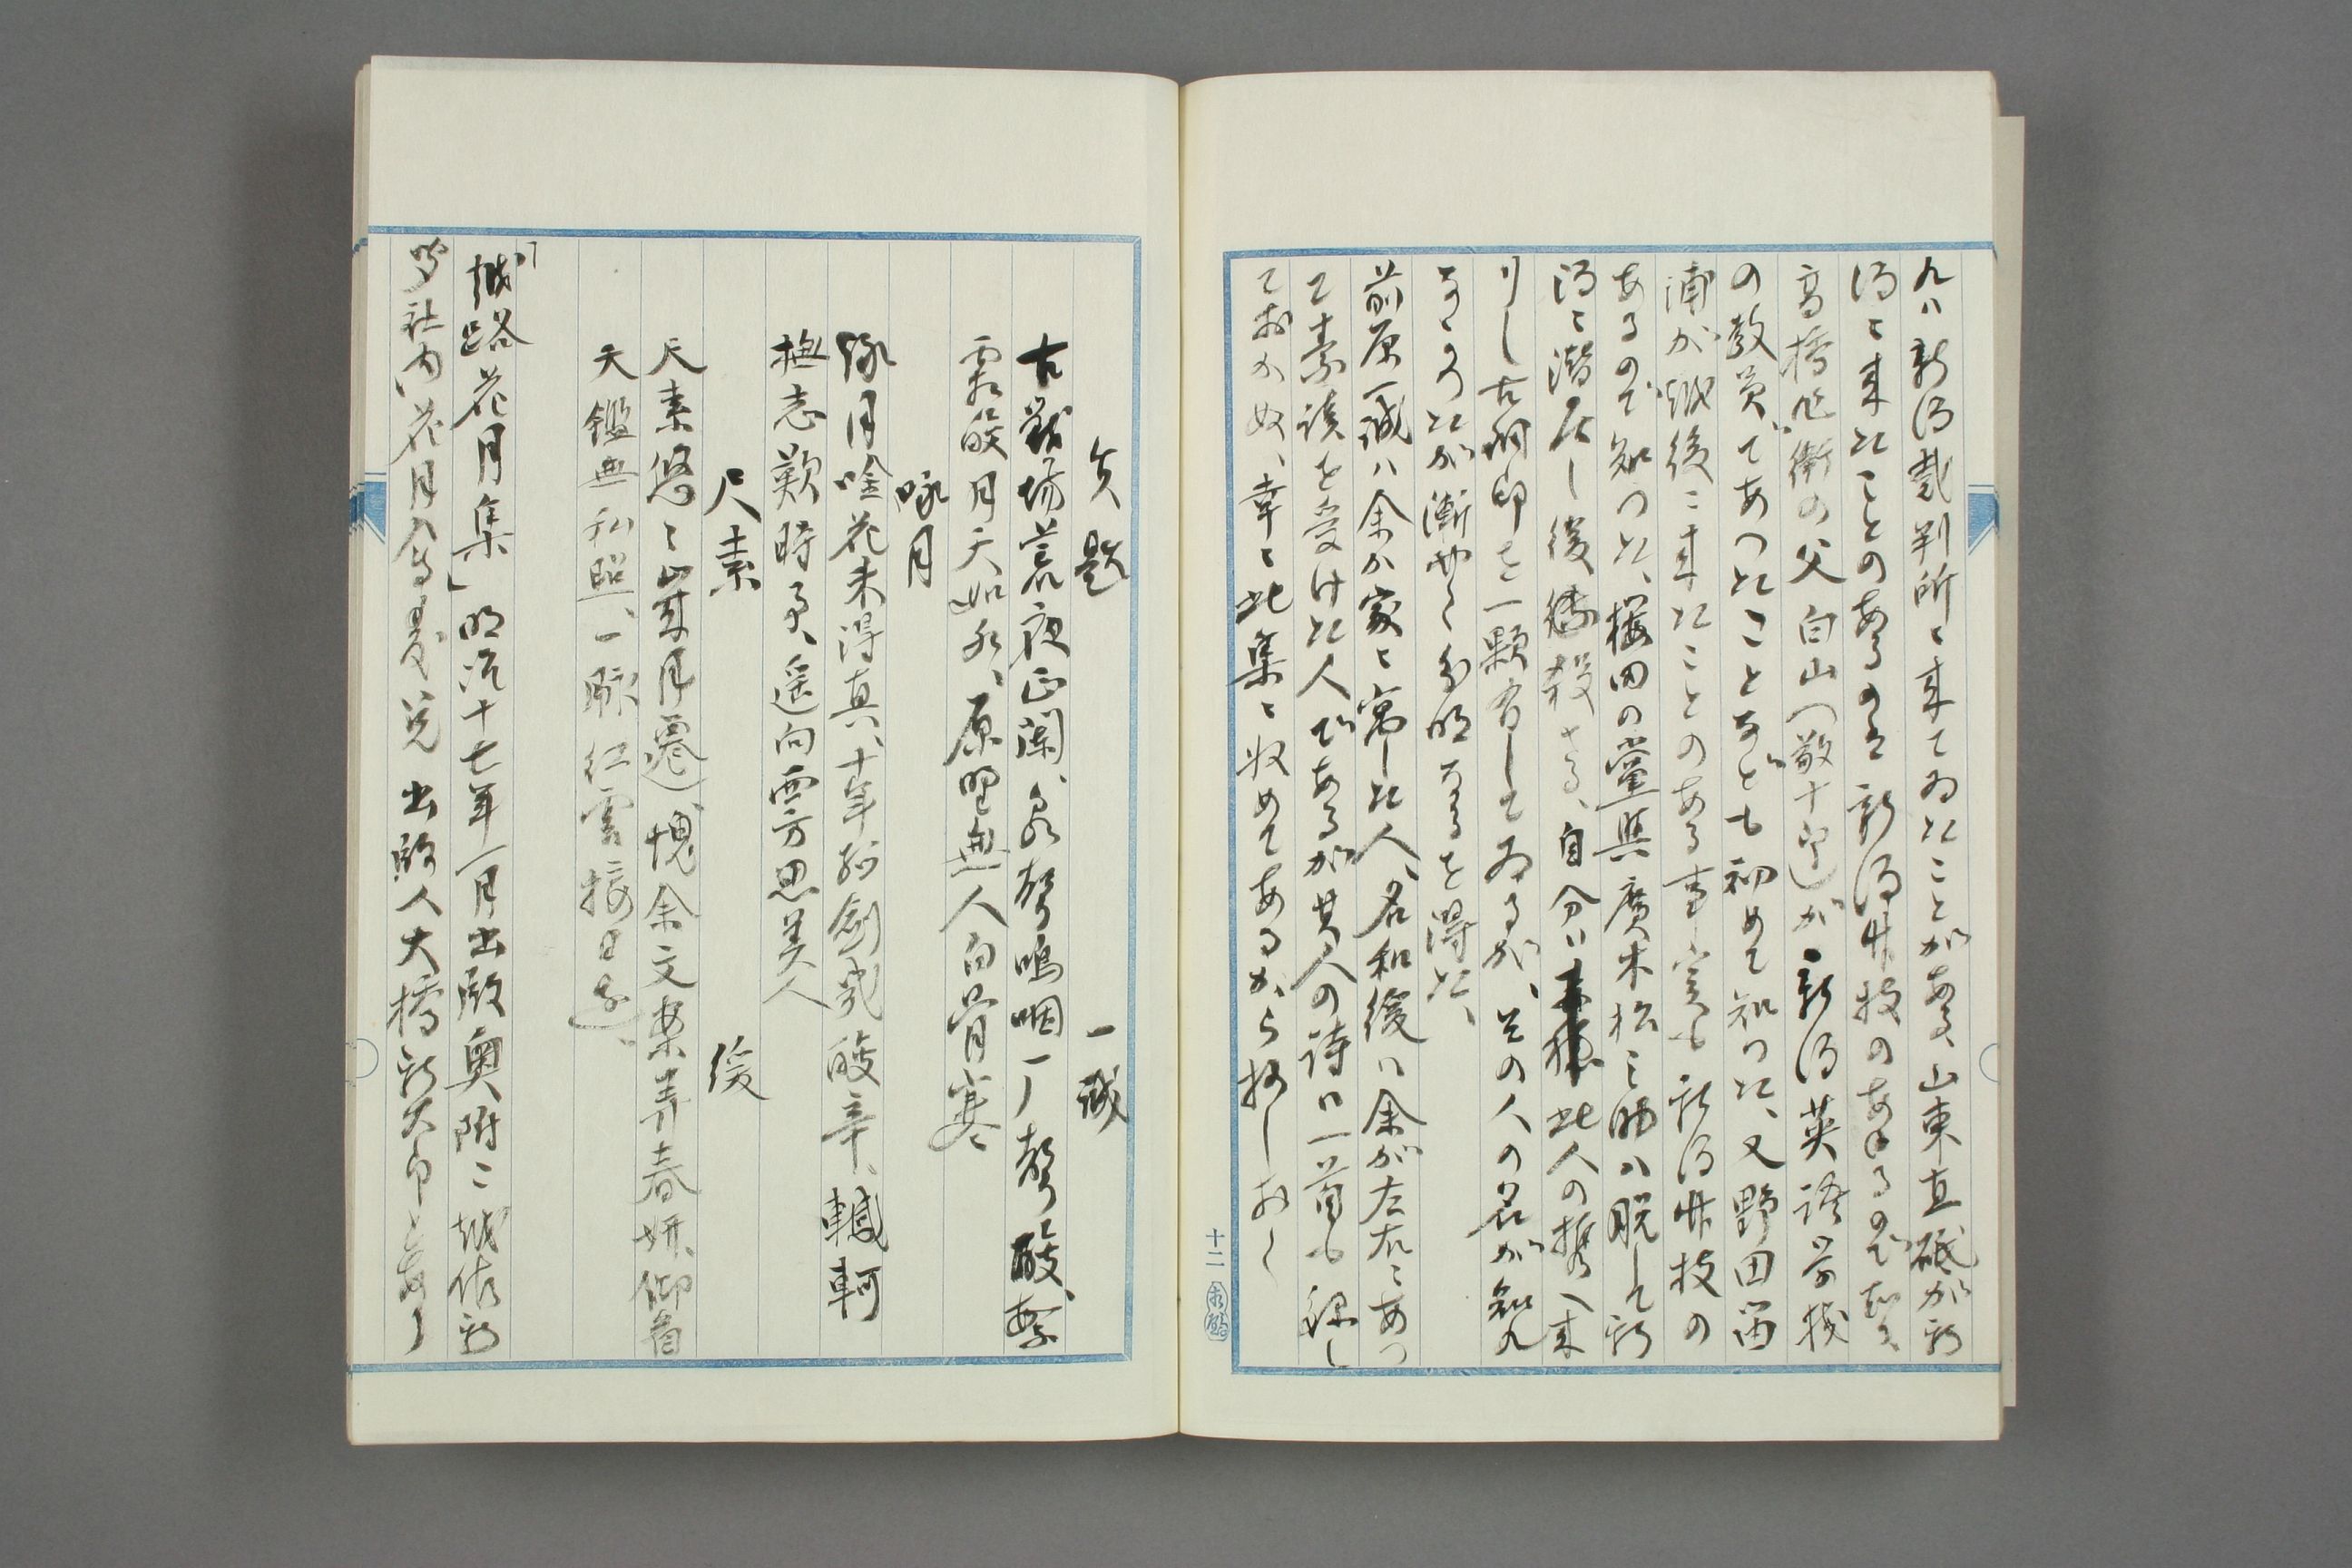 九ハ新潟裁判所に来てゐたことがある、山東直砥が新
潟に来たことのあるのは新潟井枝のあるので知る、
高橋作衛の父白山(敬十郎)が新潟英語学校
の教員であつたことなども初めて知つた、又野田笛
浦が越後に来たことのある事実も新潟井枝の
あるので知つた、櫻田の黨與廣木松之助ハ脱して新
潟に潜居し後縛殺さる、自分ハ此人の携へ来
りし古銅印を一顆有してゐるが、その人の名が知れ
なかつたが漸やく分明なるを得た、
前原一誠ハ余が家に寓した人、名和緩ハ余が左右にあつ
て素読を受けた人であるが其人の詩ハ一首も録し
ておかぬ、幸に此集に収めてあるから抄しおく
十二
失題 一誠
古戰場荒夜正闌、泉聲嗚咽一聲酸、
霜皎月天如水、原野無人白骨寒
咏月
啄月唫花未得真、十年孤劍飛酸辛、轗軻
撫志歎時勇、遥向雲方思美人
尺素 緩
尺素悠々歳月遷、愧余文案弄春妍、仰看
天鑑無私照、一脈紅雲接日邊、
「越路花月集」明治十七年一月出版奥附ニ越佐新
聞社内花月吟 出版人大橋新太郎とあり